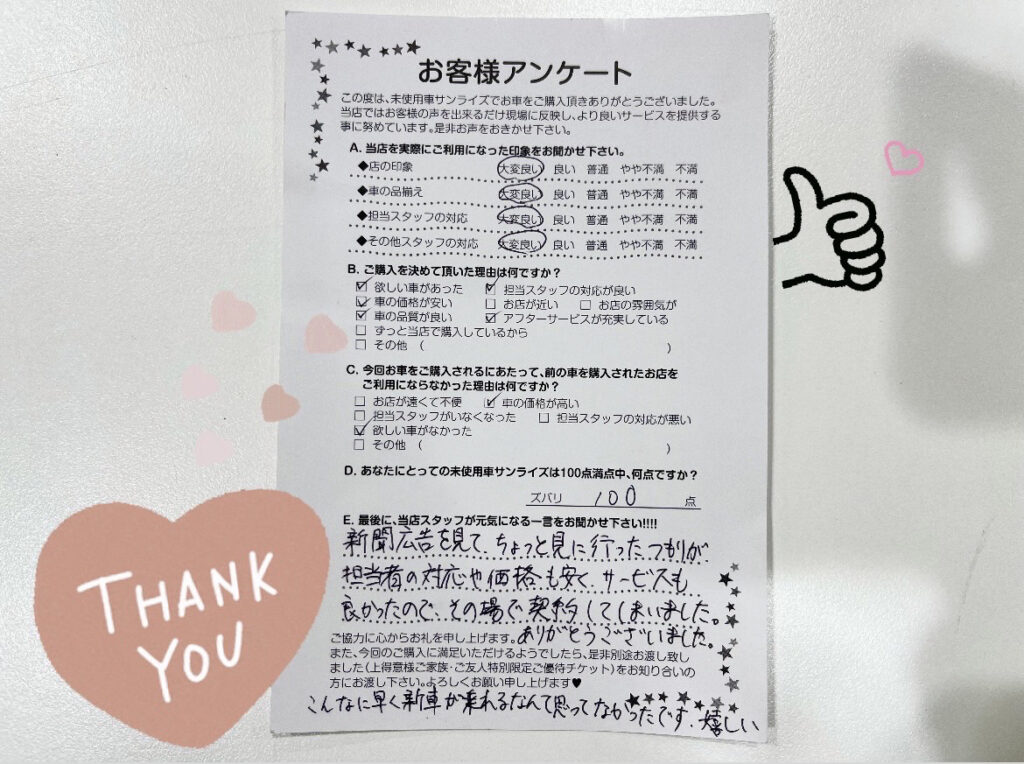 お客様アンケート
この度は、未使用車サンライズでお車をご購入頂きありがとうございました。
当店ではお客様の声を出来るだけ現場に反映し、より良いサービスを提供する
事に努めています。是非お声をおきかせ下さい。
A. 当店を実際にご利用になった印象をお聞かせ下さい。
◆店の印象 大変良い 良い 普通 やや不満 不満
◆車の品揃え 大変良い 良い 普通 やや不満 不満
◆担当スタッフの対応 大変良い 良い 普通 やや不満 不満
◆その他スタッフの対応 大変良い 良い 普通 やや不満 不満
B. ご購入を決めて頂いた理由は何ですか？
☑ 欲しい車があった ☑ 担当スタッフの対応が良い
☑ 車の価格が安い □ お店が近い □ お店の雰囲気が
☑ 車の品質が良い ☑ アフターサービスが充実している
□ ずっと当店で購入しているから
□ その他（ ）
C. 今回お車をご購入されるにあたって、前の車を購入されたお店を
ご利用にならなかった理由は何ですか？
□ お店が遠くて不便 ☑ 車の価格が高い
□ 担当スタッフがいなくなった □ 担当スタッフの対応が悪い
☑ 欲しい車がなかった
□ その他（ ）
D. あなたにとっての未使用車サンライズは100点満点中、何点ですか？
ズバリ 100 点
E. 最後に、当店スタッフが元気になる一言をお聞かせ下さい!!!!
新聞広告を見て、ちょっと見に行ったつもりが
担当者の対応や価格も安く、サービスも
良かったので、その場で契約してしまいました。
ありがとうございました。
ご協力に心からお礼を申し上げます。
また、今回のご購入に満足いただけるようでしたら、是非別途お渡し致し
ました（上得意様ご家族・ご友人特別限定ご優待チケット）をお知り合いの
方にお渡し下さい。よろしくお願い申し上げます♥
こんなに早く新車が来れるなんて思ってなかったです、嬉しい
THANK
YOU